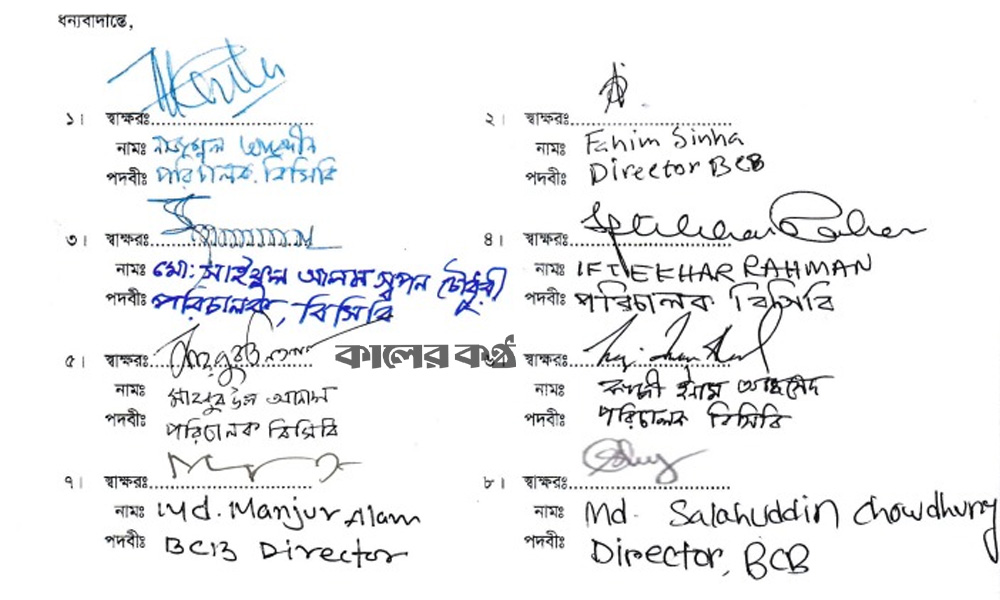 ধন্যবাদান্তে,
১। স্বাক্ষরঃ
নামঃ নাজমুল আবেদীন
পদবীঃ পরিচালক, বিসিবি
২। স্বাক্ষরঃ
নামঃ Fahim Sinha
পদবীঃ Director BCB
৩। স্বাক্ষরঃ
নামঃ মোঃ সাইফুল আলম স্বপন চৌধুরী
পদবীঃ পরিচালক, বিসিবি
৪। স্বাক্ষরঃ Iftekhar Rahman
নামঃ IFTEKHAR RAHMAN
পদবীঃ পরিচালক বিসিবি
৫। স্বাক্ষরঃ
নামঃ মাহবুবউল আনাম
পদবীঃ পরিচালক বিসিবি
কালের কণ্ঠ
৬। স্বাক্ষরঃ
নামঃ কাজী ইনাম আহমেদ
পদবীঃ পরিচালক বিসিবি
৭। স্বাক্ষরঃ
নামঃ Md. Manjur Alam
পদবীঃ BCB Director
৮। স্বাক্ষরঃ
নামঃ Md. Salahuddin Chowdhury
পদবীঃ Director, BCB